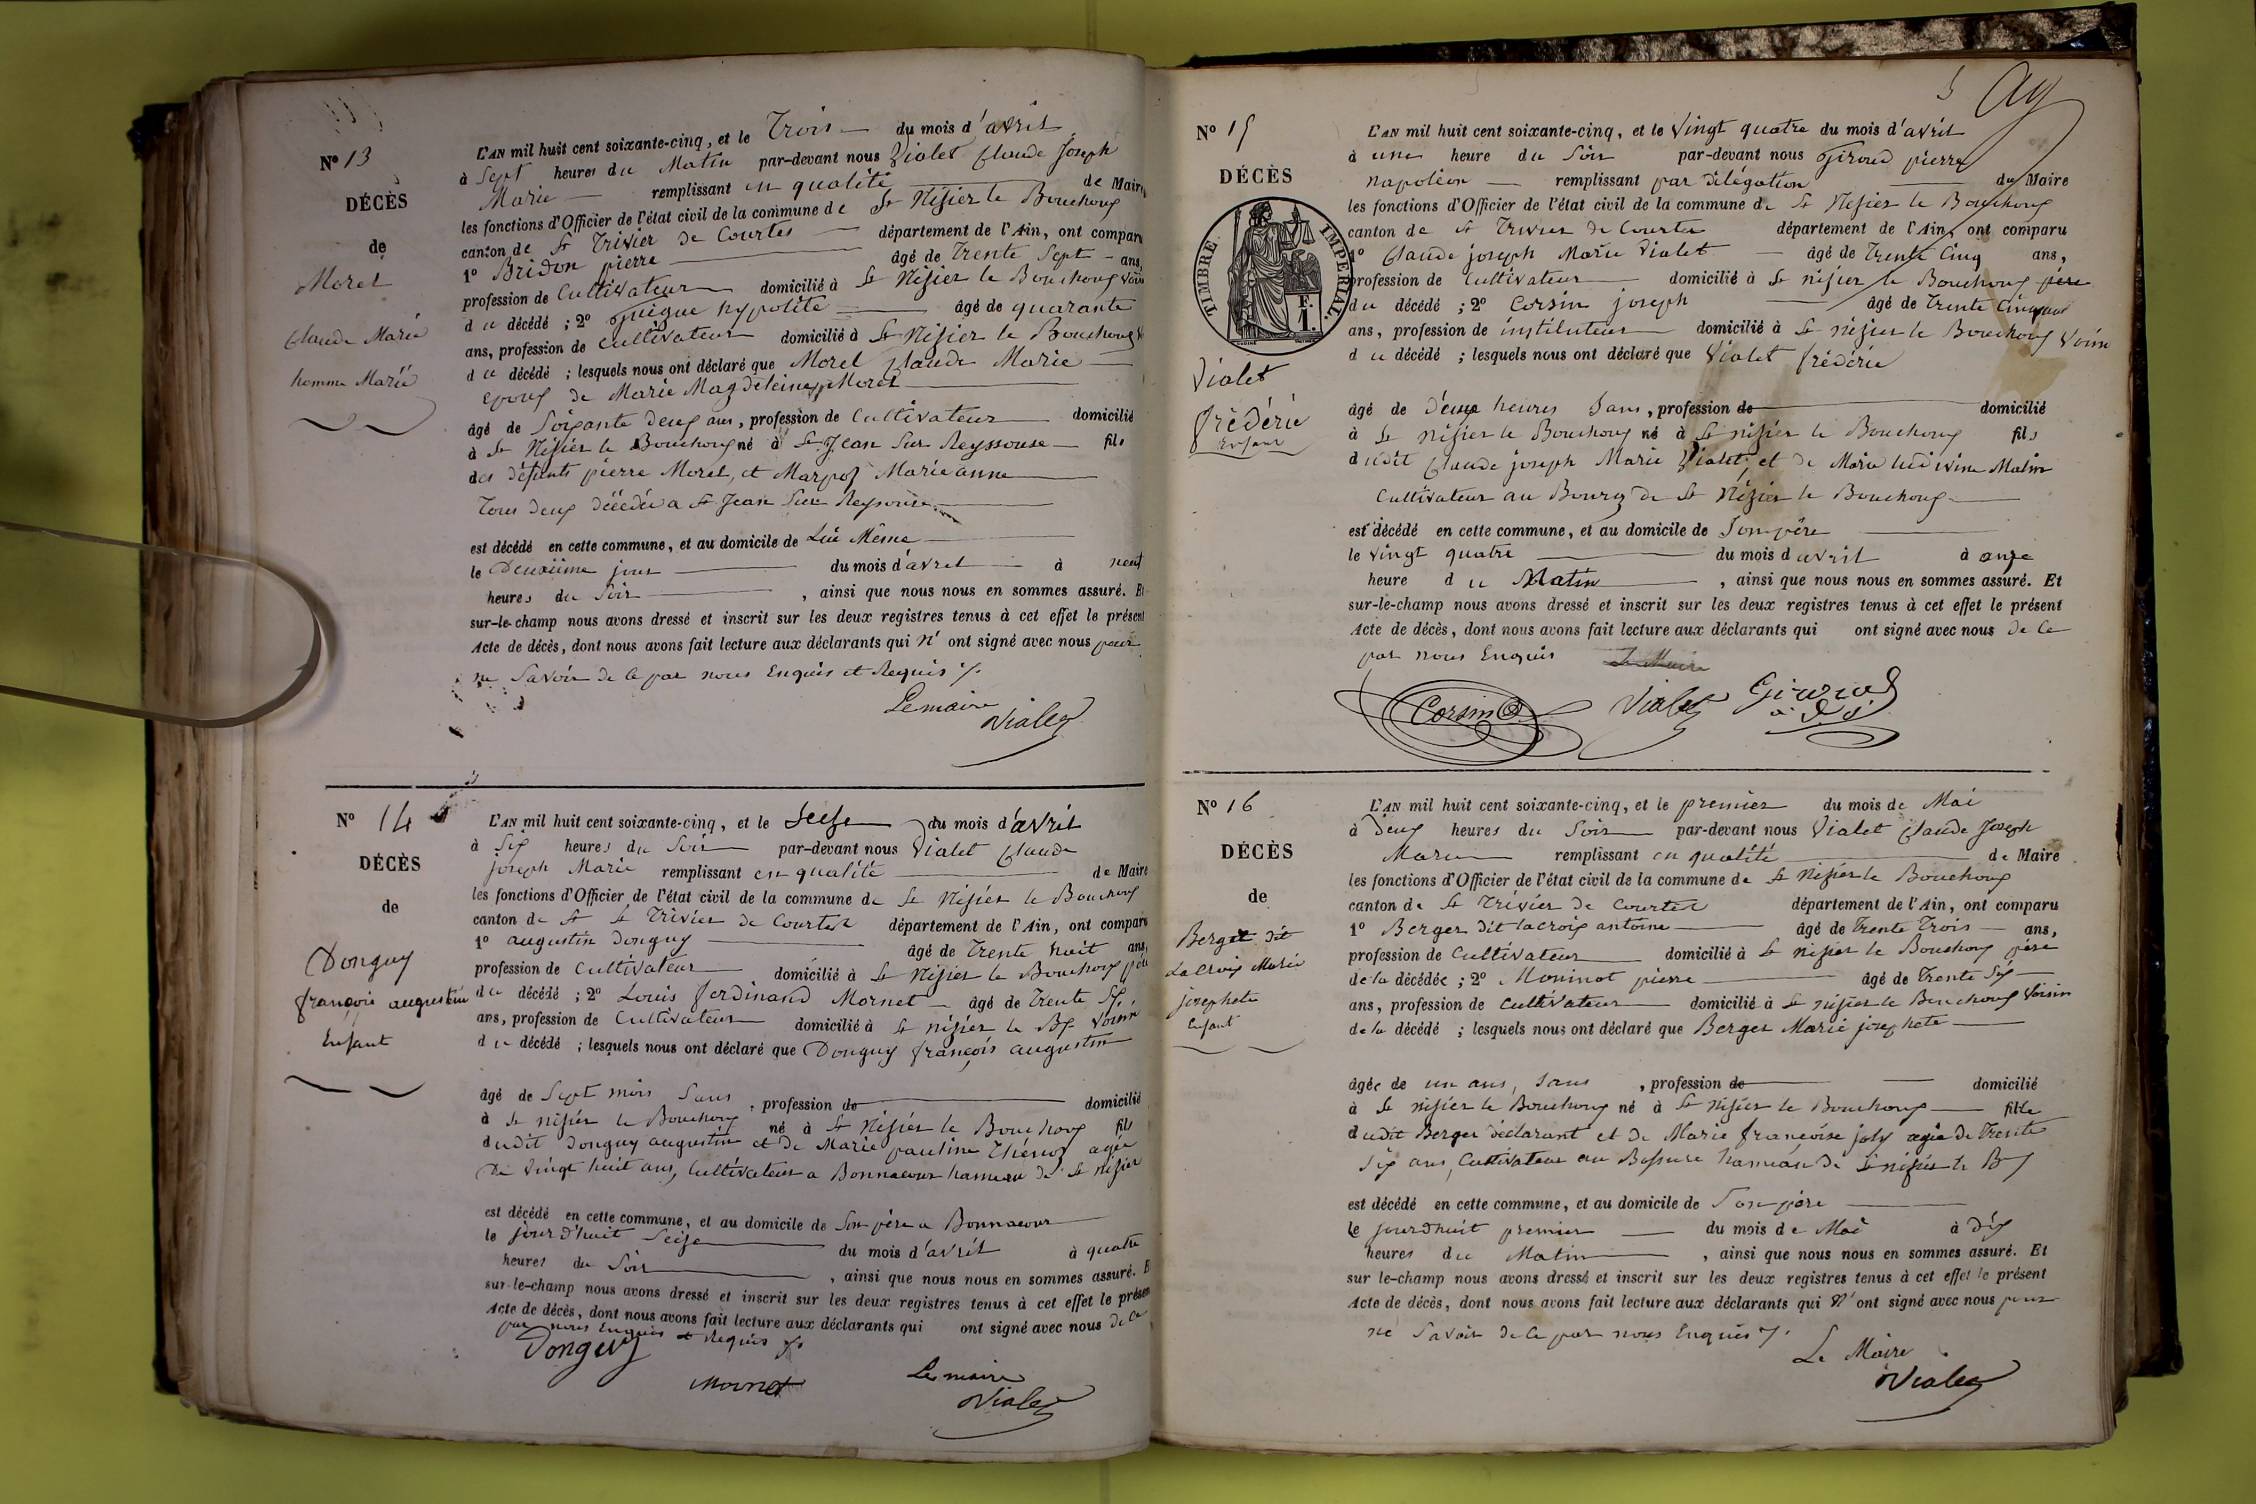 N° 13
DÉCÈS
de
Morel
Claude Marie
homme Marié
L'AN mil huit cent soixante-cinq, et le Trois du mois d'avril
à Sept heures du Matin par-devant nous Vialet Claude Joseph
Marie remplissant en qualité de Maire
les fonctions d'Officier de l'état civil de la commune de St Nisier le Bouchoux
canton de St Trivier de Courtes département de l'Ain, ont comparu
1° Bridon pierre âgé de Trente Sept ans,
profession de Cultivateur domicilié à St Nisier le Bouchoux voisin
du décédé ; 2° hypolite âgé de quarante
ans, profession de Cultivateur domicilié à St Nisier le Bouchoux
du décédé ; lesquels nous ont déclaré que Morel Claude Marie
epoux de Marie Magdeleine Morel
âgé de Soixante deux ans, profession de Cultivateur domicilié
à St Nisier le Bouchoux né à St Jean Sur Reyssouse fils
des défunts pierre Morel, et Marie anne
Tous deux décédés a St Jean Sur Reyssouse
est décédé en cette commune, et au domicile de Lui Même
le Deuxième jour du mois d'avril à neuf
heures du Soir , ainsi que nous nous en sommes assuré. Et
sur-le-champ nous avons dressé et inscrit sur les deux registres tenus à cet effet le présent
Acte de décès, dont nous avons fait lecture aux déclarants qui n' ont signé avec nous pour
ne Savoir de ce par nous Enquis et Requis
Le maire
Vialet
N° 14
DÉCÈS
de
Donguy
françois augustin
Enfant
L'AN mil huit cent soixante-cinq, et le Seize du mois d'avril
à Six heures du Soir par-devant nous Vialet Claude
joseph Marie remplissant en qualité de Maire
les fonctions d'Officier de l'état civil de la commune de St Nisier le Bouchoux
canton de St St Trivier de Courtes département de l'Ain, ont comparu
1° augustin Donguy âgé de Trente huit ans,
profession de Cultivateur domicilié à St Nisier le Bouchoux père
du décédé ; 2° Louis ferdinand Mornet âgé de Trente Six
ans, profession de Cultivateur domicilié à St nisier le Bx Voisin
du décédé ; lesquels nous ont déclaré que Donguy françois augustin
âgé de Sept mois Sans , profession de domicilié
à St nisier le Bouchoux né à St Nisier le Bouchoux fils
dudit Donguy augustin et de Marie pauline Thénoz agée
De Vingt huit ans, Cultivateur a Bonnacour hameau de St nisier
est décédé en cette commune, et au domicile de Son père a Bonnacour
le jour d'huit Seize du mois d'avril à quatre
heures du Soir , ainsi que nous nous en sommes assuré. Et
sur-le-champ nous avons dressé et inscrit sur les deux registres tenus à cet effet le présent
Acte de décès, dont nous avons fait lecture aux déclarants qui ont signé avec nous de ce
par nous Enquis et Requis
Donguy
Mornet
Le maire
Vialet
5
N° 15
DÉCÈS
TIMBRE IMPÉRIAL
F.
1.
Vialet
frédéric
Enfant
L'AN mil huit cent soixante-cinq, et le Vingt quatre du mois d'avril
à une heure du Soir par-devant nous Giroud pierre
napoléon remplissant par délégation du Maire
les fonctions d'Officier de l'état civil de la commune de St Nisier le Bouchoux
canton de St Trivier de Courtes département de l'Ain, ont comparu
1° Claude joseph Marie Vialet âgé de Trente Cinq ans,
profession de Cultivateur domicilié à St nisier le Bouchoux père
du décédé ; 2° Corsin joseph âgé de Trente Cinq
ans, profession de instituteur domicilié à St nisier le Bouchoux Voisin
du décédé ; lesquels nous ont déclaré que Vialet frédéric
âgé de Deux heures Sans , profession de domicilié
à St nisier le Bouchoux né à St nisier le Bouchoux fils
dudit Claude joseph Marie Vialet, et de Marie Matin
Cultivateur au Bourg de St Nizier le Bouchoux
est décédé en cette commune, et au domicile de Son père
le vingt quatre du mois d avril à onze
heure du Matin , ainsi que nous nous en sommes assuré. Et
sur-le-champ nous avons dressé et inscrit sur les deux registres tenus à cet effet le présent
Acte de décès, dont nous avons fait lecture aux déclarants qui ont signé avec nous de ce
par nous Enquis Le Maire
Corsin Vialet Giroud
N° 16
DÉCÈS
de
Berger dit
Lacroix Marie
josephete
Enfant
L'AN mil huit cent soixante-cinq, et le premier du mois de Mai
à Deux heures du Soir par-devant nous Vialet Claude Joseph
Marie remplissant en qualité de Maire
les fonctions d'Officier de l'état civil de la commune de St Nisier le Bouchoux
canton de St Trivier de Courtes département de l'Ain, ont comparu
1° Berger dit lacroix antoine âgé de Trente Trois ans,
profession de Cultivateur domicilié à St nisier le Bouchoux père
de la décédée ; 2° Moninot pierre âgé de Trente Six
ans, profession de Cultivateur domicilié à St nisier le Bouchoux Voisin
de la décédé ; lesquels nous ont déclaré que Berger Marie josephete
âgée de un ans, Sans , profession de domicilié
à St nisier le Bouchoux né à St nisier le Bouchoux fille
dudit Berger déclarant et de Marie françoise joly agée de Trente
Six ans, Cultivateur au hameau de St nisier le Bx
est décédé en cette commune, et au domicile de Son père
le jourdhuit premier du mois de Mai à Dix
heures du Matin , ainsi que nous nous en sommes assuré. Et
sur le-champ nous avons dressé et inscrit sur les deux registres tenus à cet effet le présent
Acte de décès, dont nous avons fait lecture aux déclarants qui N' ont signé avec nous pour
ne Savoir de ce par nous Enquis
Le Maire
Vialet